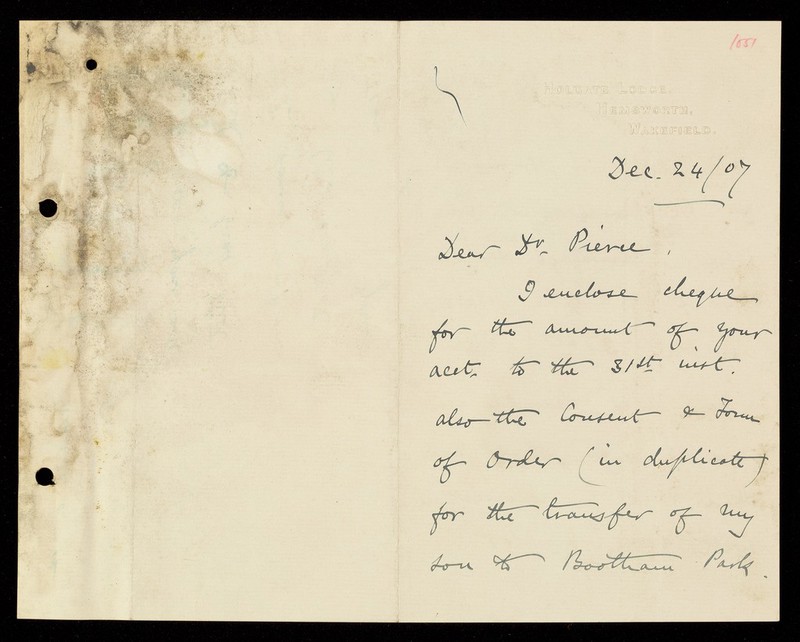 1551
Holgate Lodge,
Hemsworth,
Wakefield.
Dec. 24/07
Dear Dr. Pierce,
I enclose cheque
for the amount of your
acct. to the 31st inst.
also the Consent & Form
of Order (in duplicate)
for the transfer of my
son to Bootham Park.